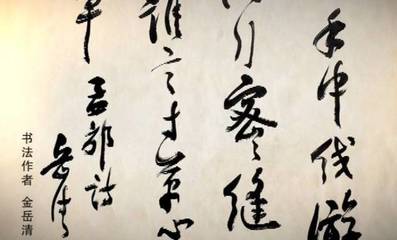 手中线游
行密密缝
谁言寸草心
孟郊诗
岳清
书法作者 金岳清